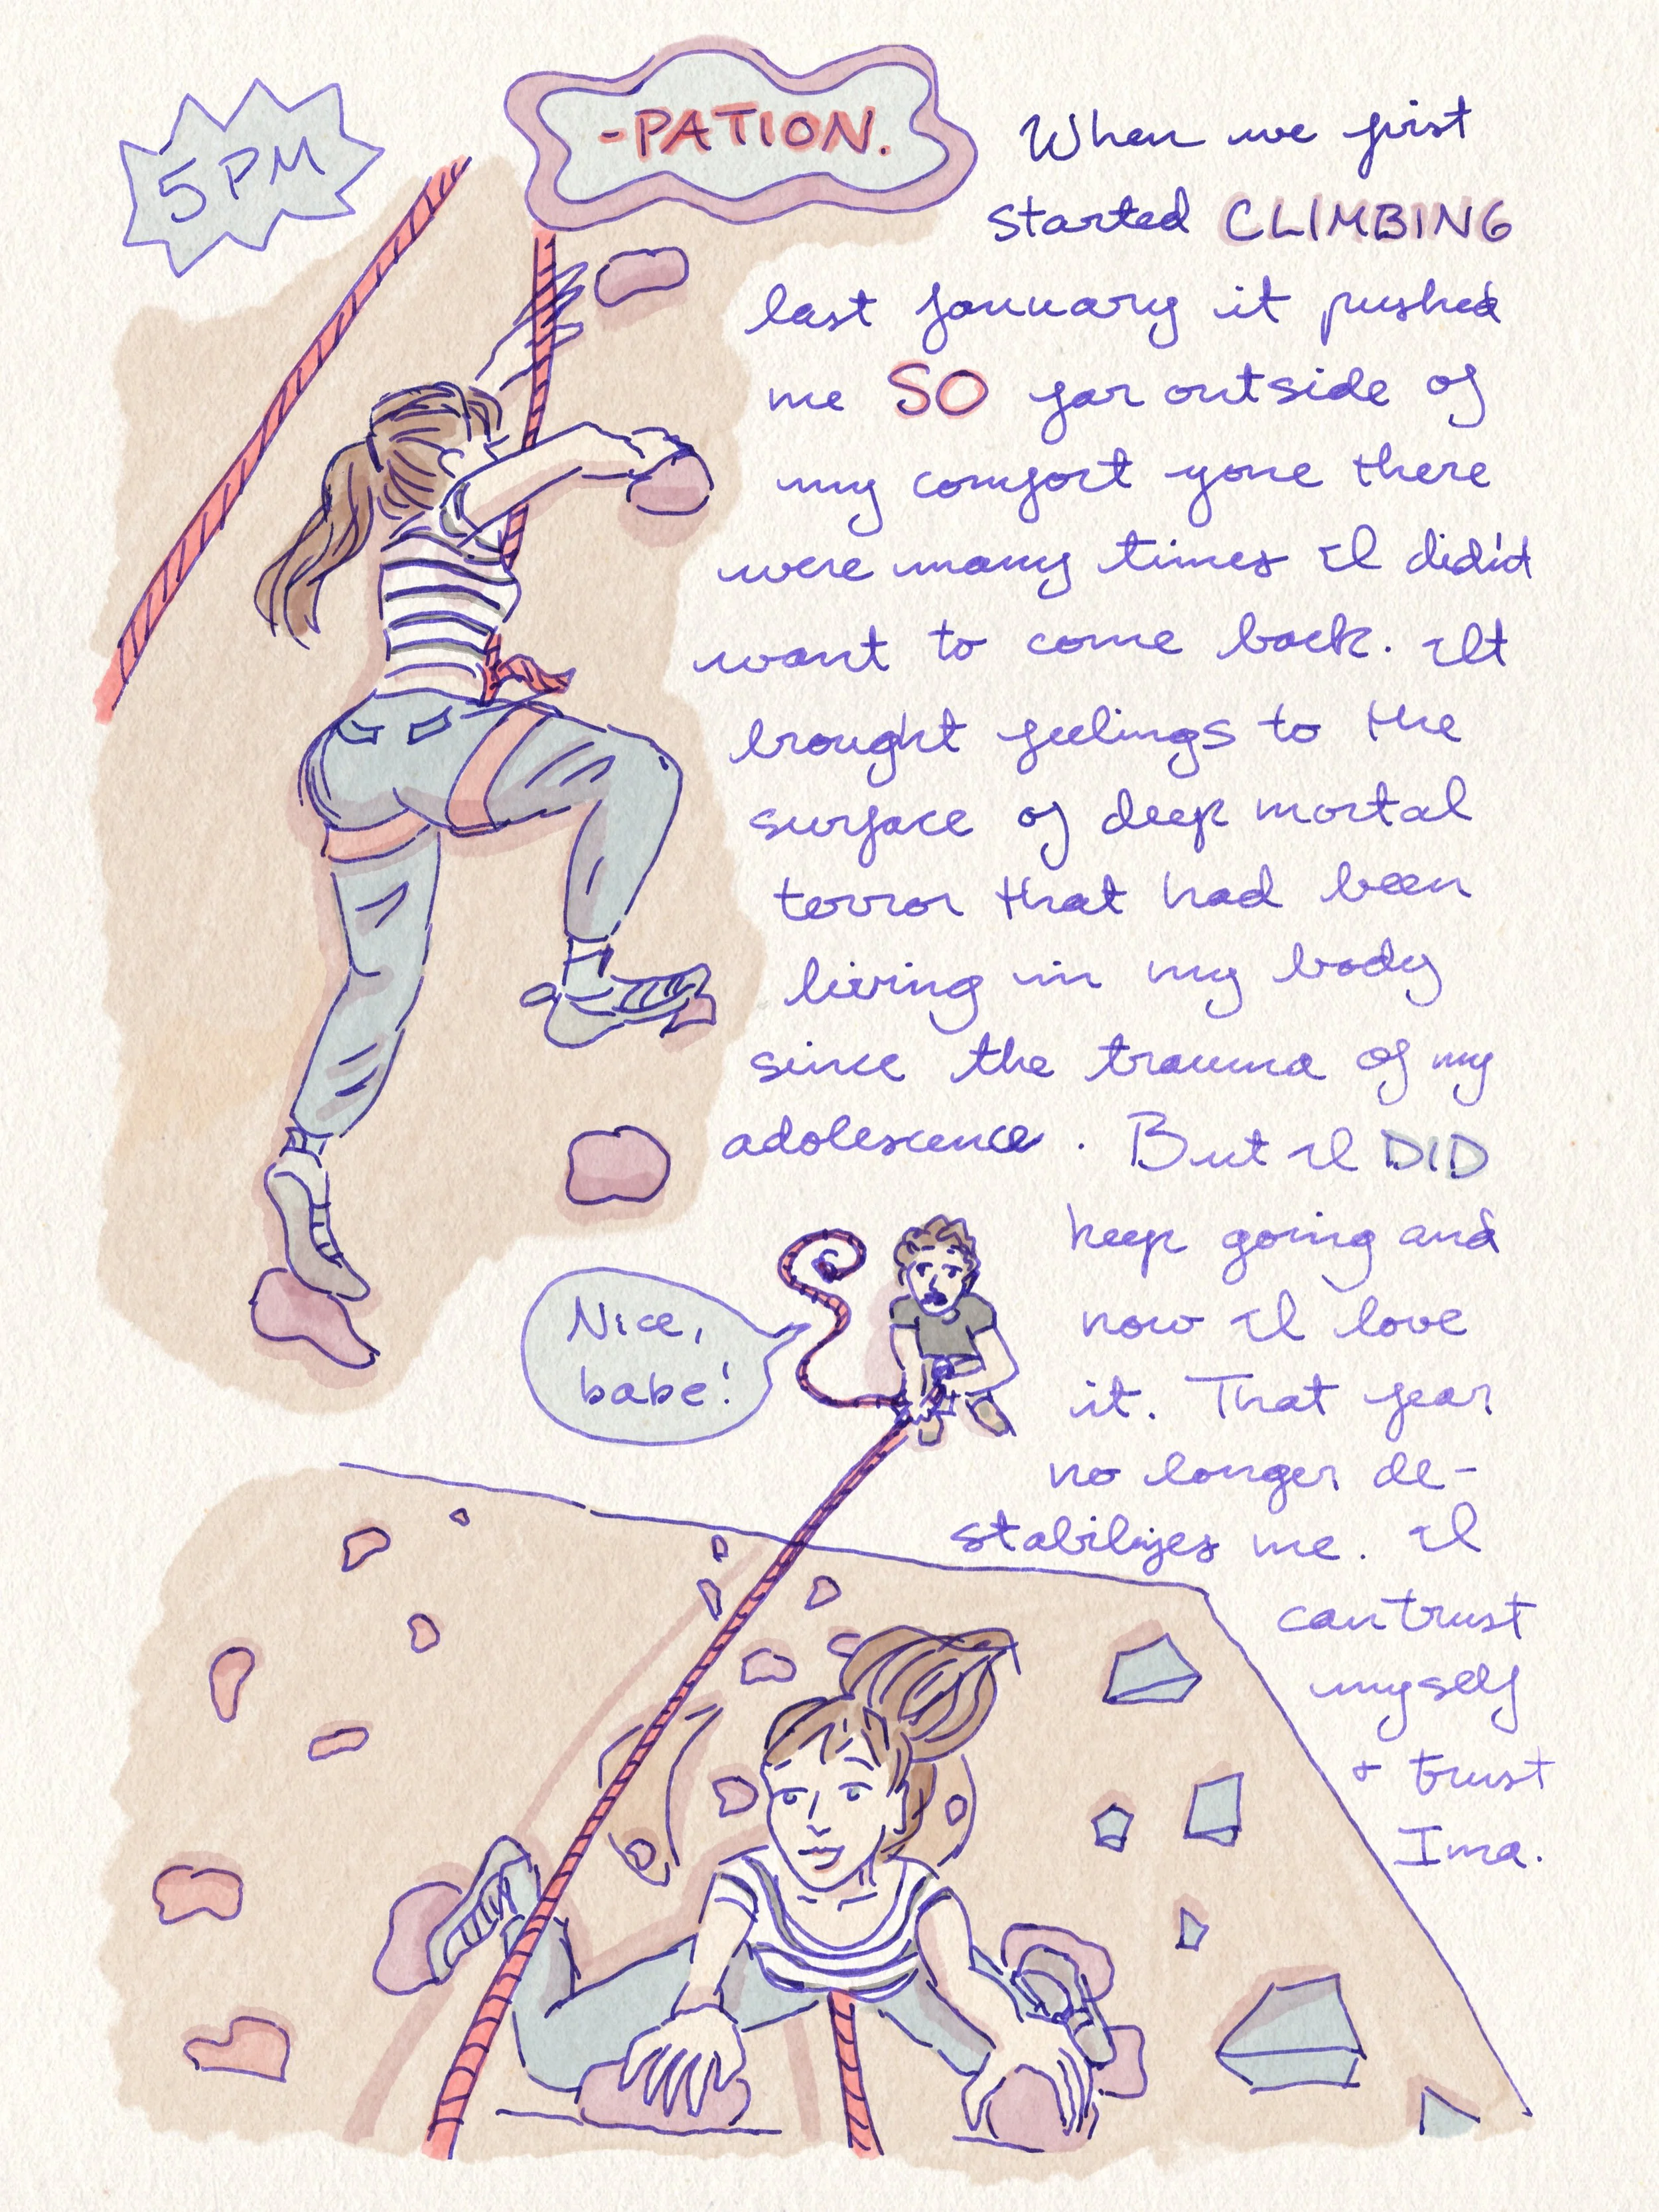 5 PM
-PATION.
When we first
started CLIMBING
last January it pushed
me SO far outside of
my comfort zone there
were many times I didn't
want to come back. It
brought feelings to the
surface of deep mortal
terror that had been
living in my body
since the trauma of my
adolescence. But I DID
keep going and
now I love
it. That fear
no longer de-
stabilizes me. I
can trust
myself
+ trust
Ima.
Nice,
babe!